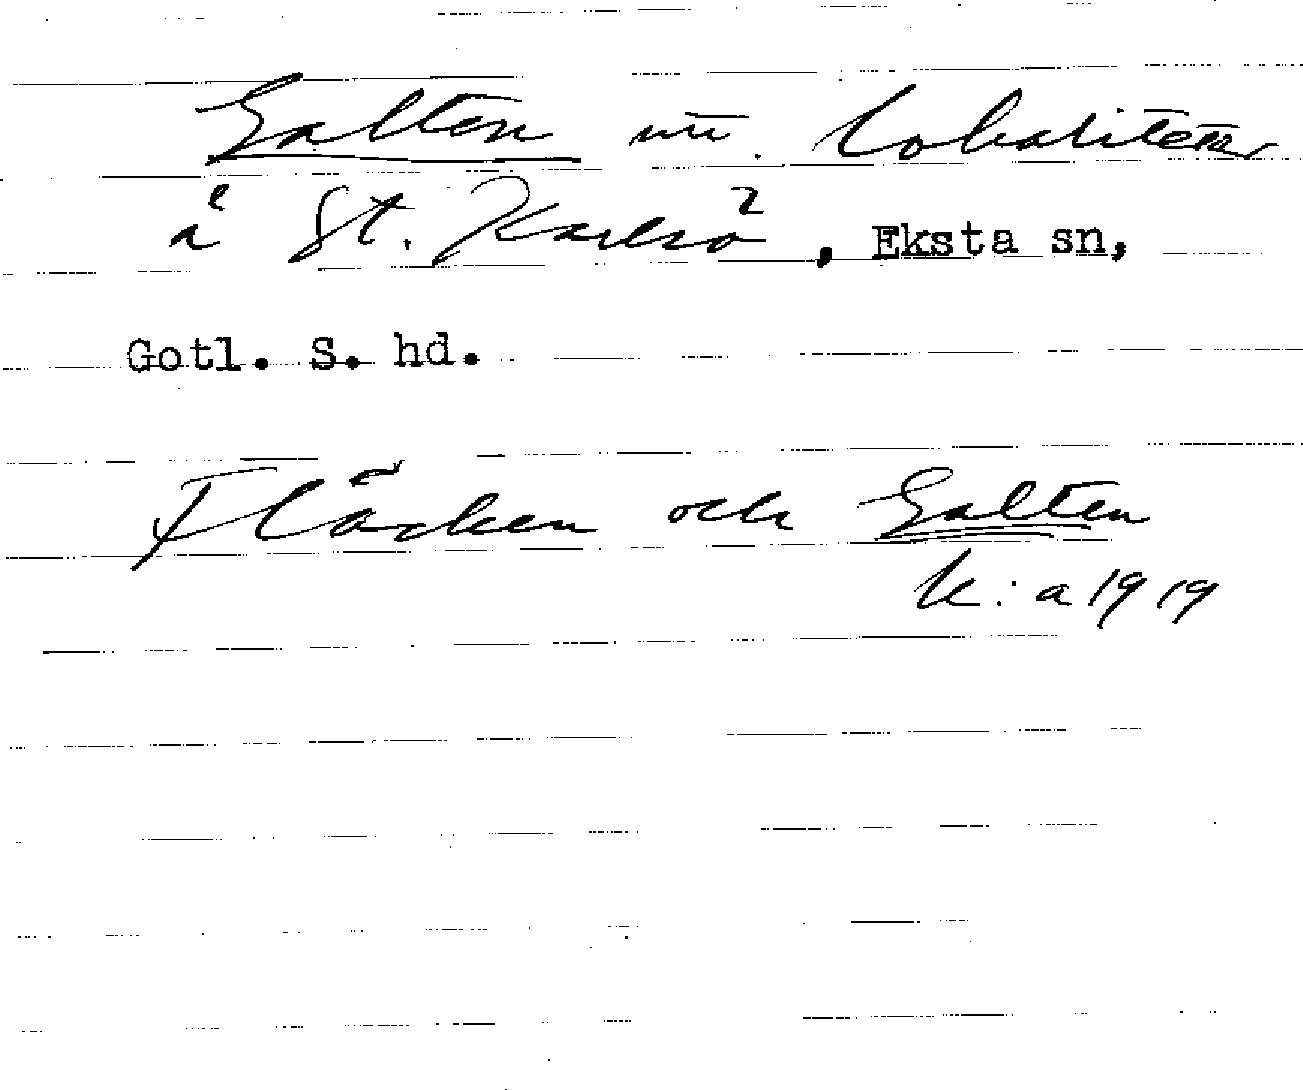 Galten nu. lokaliteter
å St. Karlsö, Eksta sn,
Gotl. S. hd.
Fläcken och Galten
k: a 1919